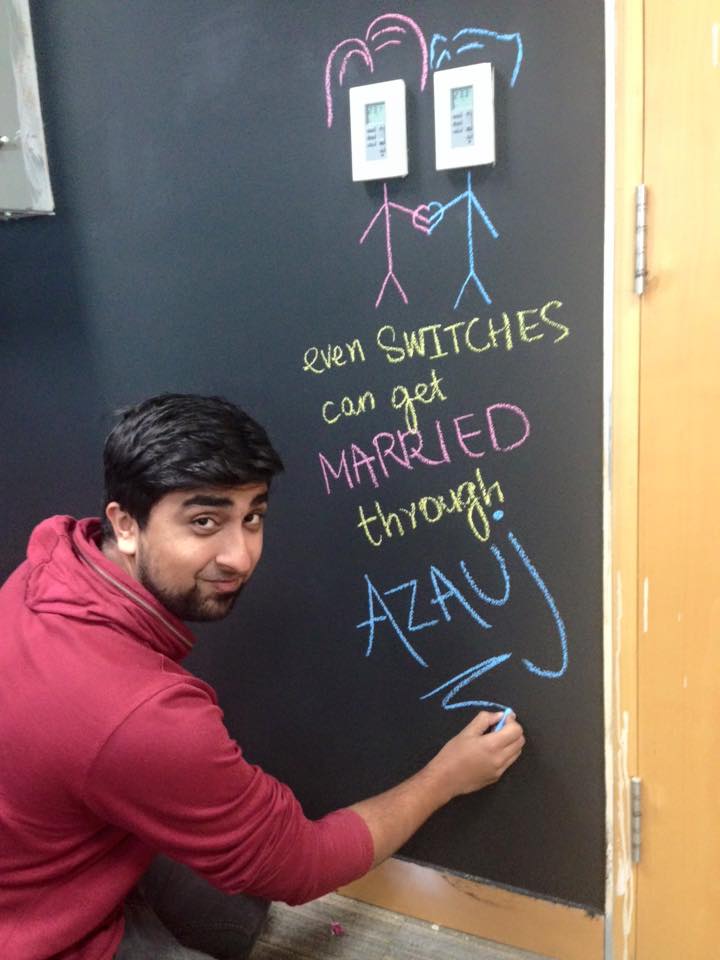 even SWITCHES
can get
MARRIED
through
AZAUj